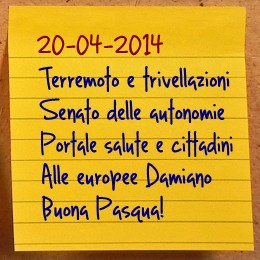 20-04-2014
Terremoto e trivellazioni
Senato delle autonomie
Portale salute e cittadini
Alle europee Damiano
Buona Pasqua!